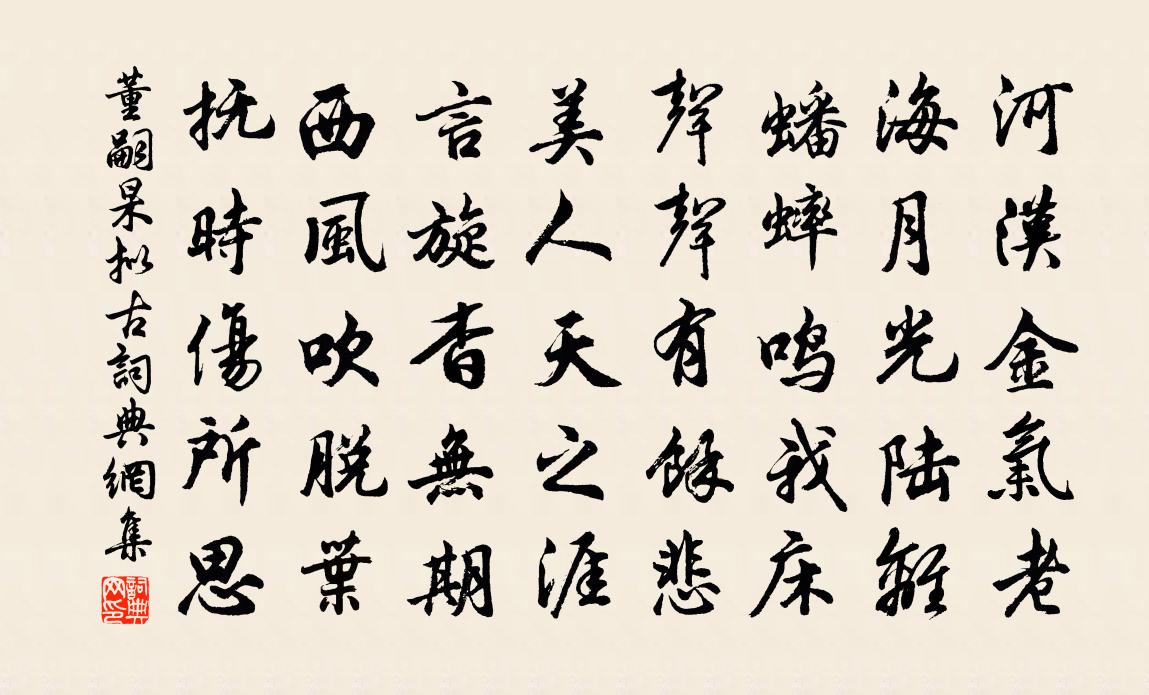 河漢金氣老
海月光陆離
蟠蟀鸣我床
聲聲有餘悲
美人天之涯
言旋杳無期
西風吹脫葉
抚時傷所思
董嗣杲拟古詞典網集
詞典网印